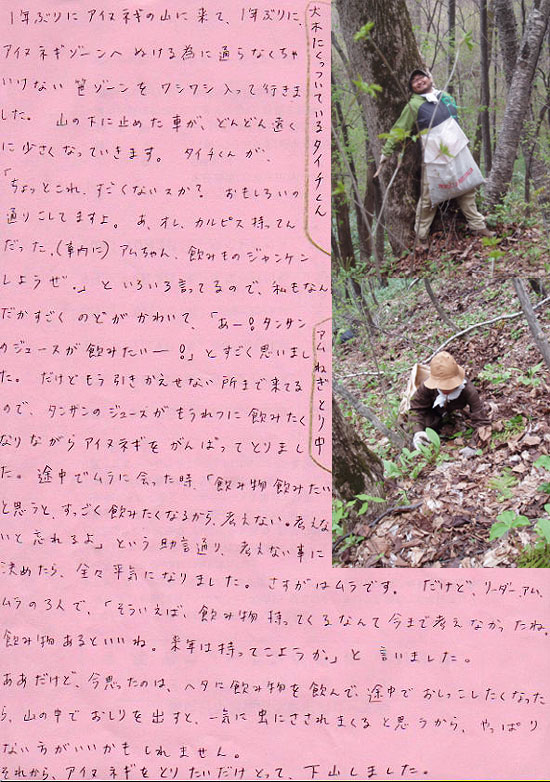 1年ぶりにアイヌネギの山に来て、1年ぶりに、
アイヌネギゾーンへぬける為に通らなくちゃ
いけない笹ゾーンをワシワシ入って行きま
した。 山の下に止めた車が、どんどん遠く
に少さくなっていきます。 タイチくんが、
「ちょっとこれ、すごくないスか?おもしろいの
通りこしてますよ。あ、オレ、カルピス持ってん
だった、(車内に)アムちゃん、飲みものジャンケン
しようぜ。」といろいろ言ってるので、私もなん
だかすごくのどがかわいて、「あー!タンサン
のジュースが飲みたいー!」とすごく思いまし
た。 だけどもう引きかえせない所まで来てる
ので、タンサンのジュースがもうれつに飲みたく
なりながらアイヌネギをがんばってとりまし
た。途中でムラに会った時、「飲み物飲みたい
と思うと、すっごく飲みたくなるから、考えない。考えな
いと忘れるよ」という助言通り、考えない事に
決めたら、全々平気になりました。さすがはムラです。 だけど、リーダー、アム、
ムラの3人で、「そういえば、飲み物持ってくるなんて今まで考えなかったね、
飲み物あるといいね。来年は持ってこようか。」と言いました。
ああだけど、今思ったのは、ヘタに飲み物を飲んで、途中でおしっこしたくなった
ら、山の中でおしりを出すと、一気に虫にさされまくると思うから、やっぱり
ない方がいいかもしれません。
それから、アイヌネギをとりたいだけとって、下山しました。
大木にくっついているタイチくん
アムねぎとり中